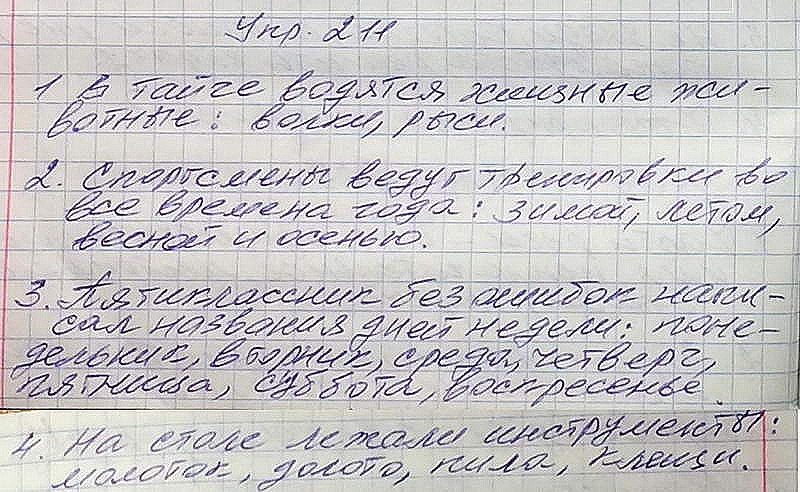 Упр. 211
1 В тайге водятся хищные жи-
вотные: волки, рыси.
2. Спортсмены ведут тренировки во
все времена года: зимой, летом,
весной и осенью.
3. Пятиклассник без ошибок напи-
сал названия дней недели: поне-
дельник, вторник, среда, четверг,
пятница, суббота, воскресенье.
4. На столе лежали инструменты:
молоток, долото, пила, клещи.